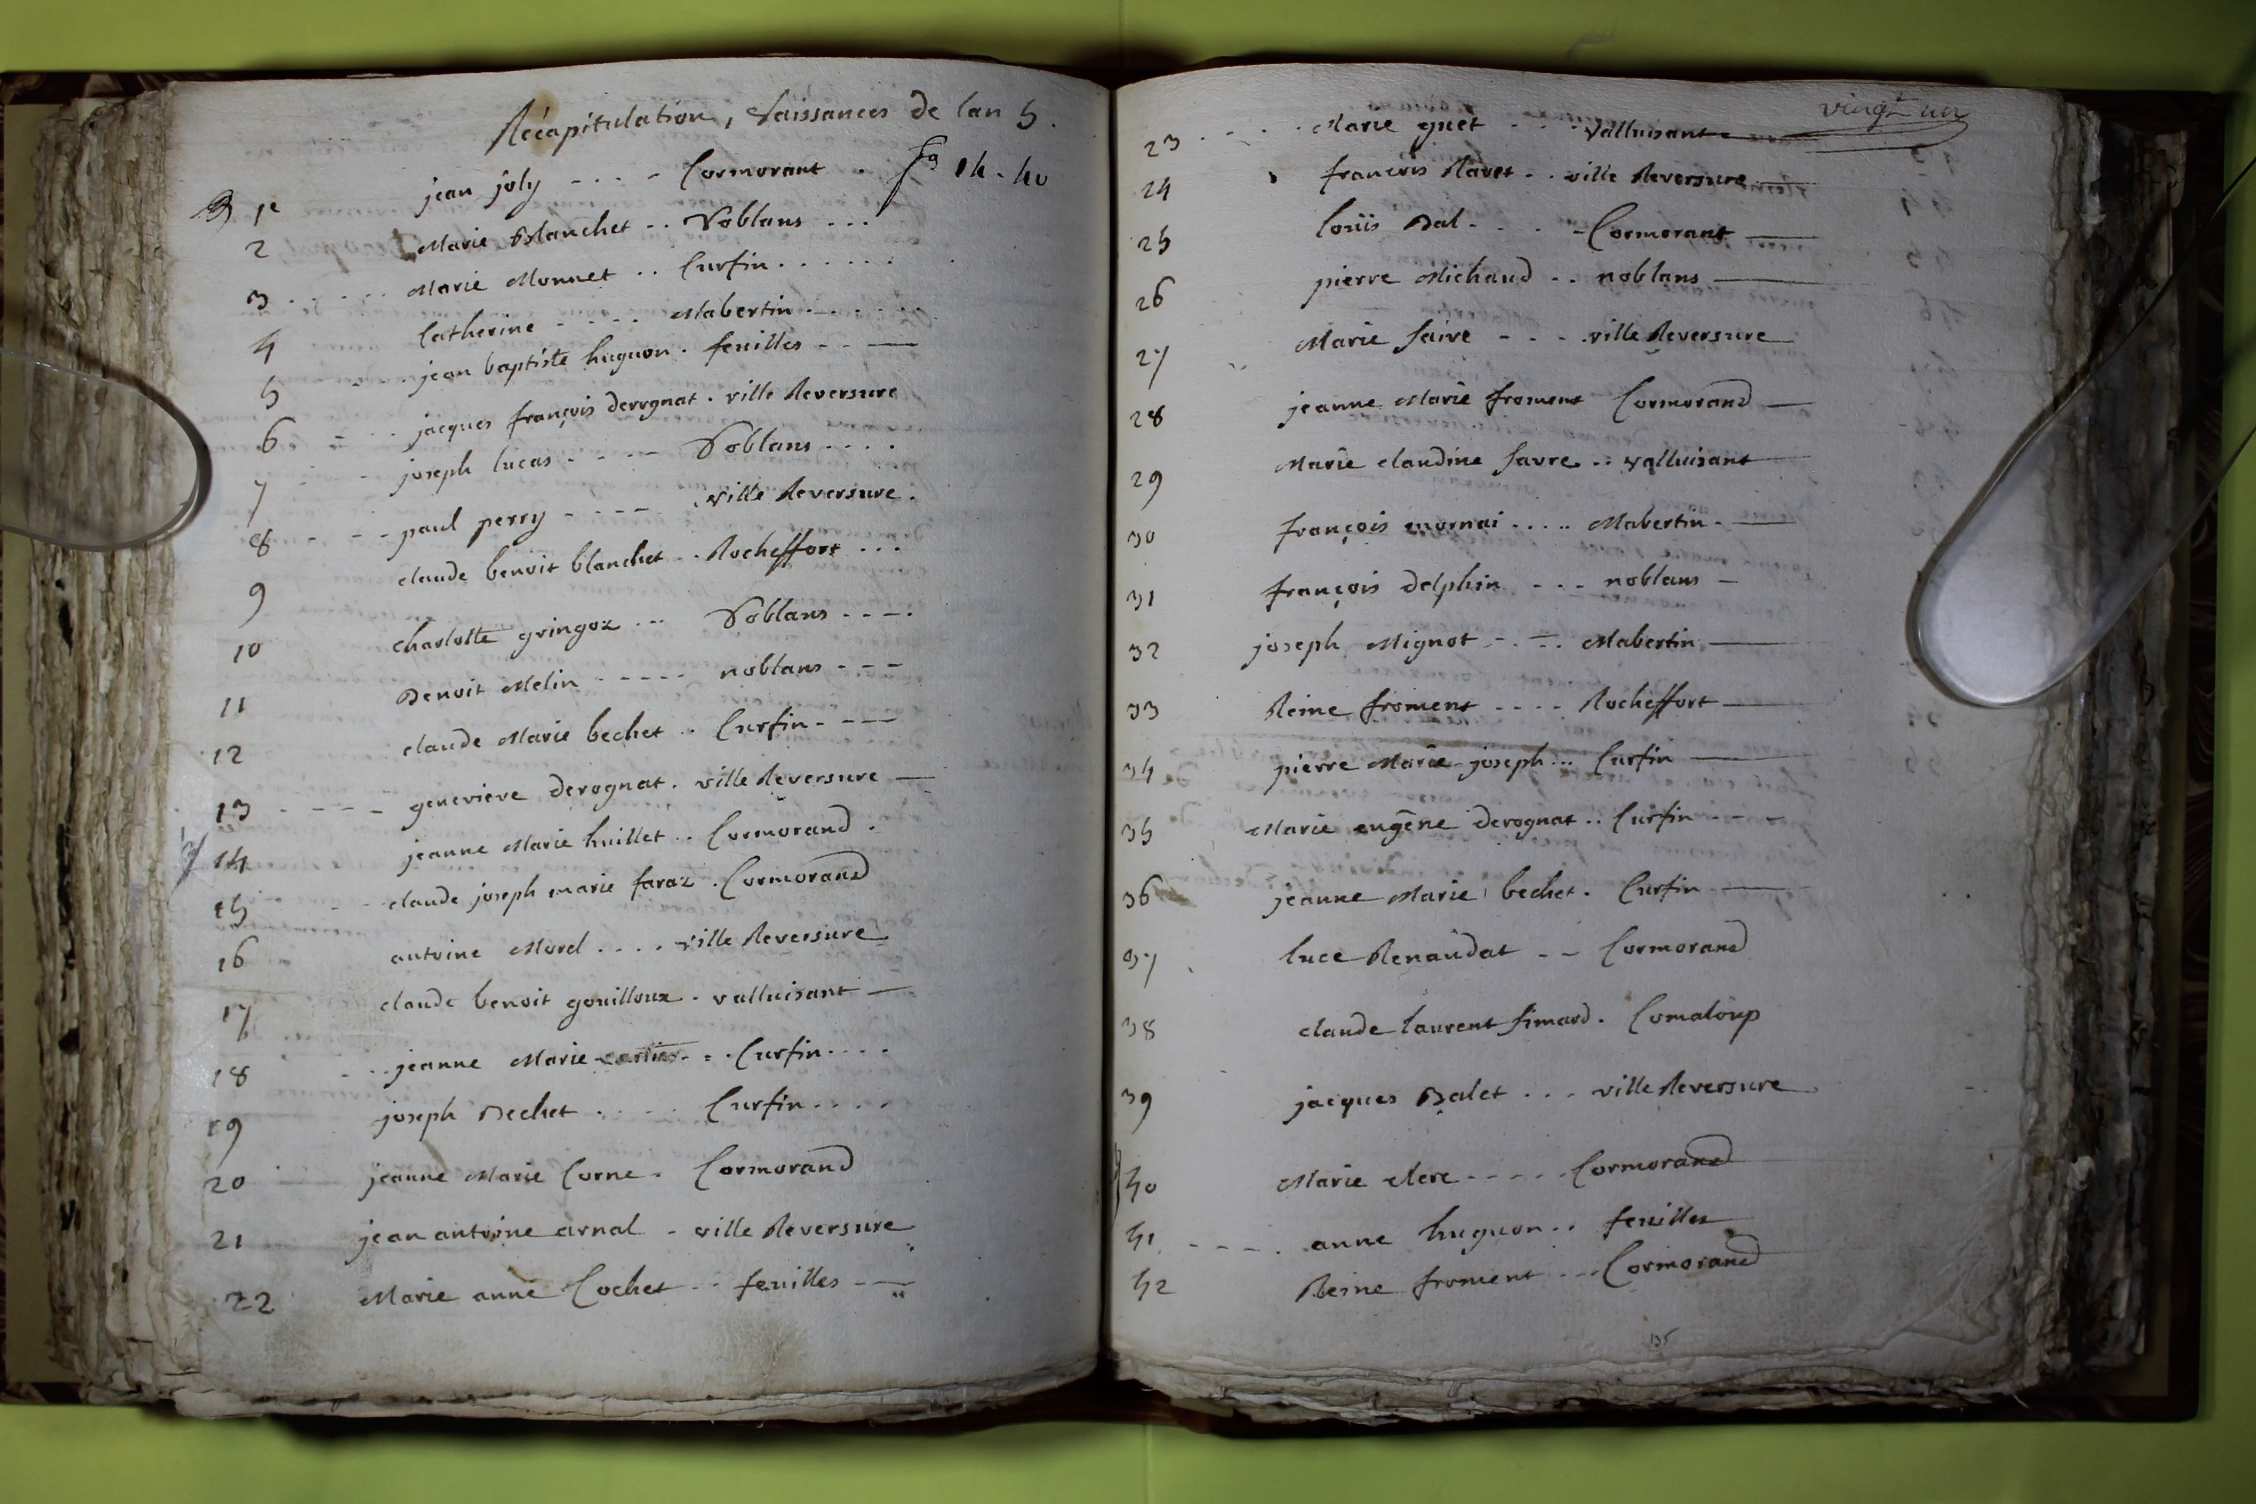 Récapitulation, Naissances de lan 5.
1r jean joly - . . - Cormorant . fo 14 - 40
2 Marie Blanchet . . Noblans . . .
3 . . . . . Marie Monnet . . Curfin . . . . . .
4 Catherine - . . . Mabertin . . . . . .
5 jean baptiste huguon . feuilles - - —
6 = . . jacques françois derognat . ville Reversure
7 joseph lucas . - . - — Noblans - . . .
8 - - - paul perry - - - — . ville Reversure .
9 claude benoit blanchet . . Rocheffort . . .
10 charlotte gringoz . . . Noblans - - - .
11 Benoit Melin - - - - - noblans - - -
12 claude Marie bechet . . Curfin - - —
13 - - - - genevieve derognat . ville Reversure —
14 jeanne Marie huillet . . Cormorand .
15 - - claude joseph marie faraz . Cormorand
16 antoine Morel . . . . ville Reversure
17 claude benoit gouilloux . valluisant —
18 - . . jeanne Marie . . . Curfin . . . .
19 joseph Bechet . . . . . Curfin . . . .
20 jeanne Marie Corne . Cormorand
21 jean antoine arnal - ville Reversure
22 Marie anne Cochet . . feuilles - —
vingt un
23 . . . . . Marie guet - . . . valluisant
24 françois Ravet . . ville Reversure
25 louis Bal . . . . - Cormorant —
26 pierre Michaud . . noblans —
27 Marie faivre - . - . ville Reversure
28 jeanne Marie froment Cormorand —
29 Marie claudine favre . . valluisant
30 françois mornai . . . . . Mabertin . —
31 françois delphin - - - noblans -
32 joseph Mignot - . - . Mabertin —
33 Reine froment - - - - Rocheffort —
34 pierre Marie joseph . . . Curfin —
35 Marie eugêne derognat . . Curfin - - -
36 jeanne Marie bechet . Curfin —
37 luce Renaudat - - Cormorand
38 claude laurent simard . Comaloup
39 jacques Balet . . . ville Reversure
40 Marie clerc - - - - . Cormorand
41 - - - . anne huguon . . feuilles
42 Reine froment - - Cormorand
135